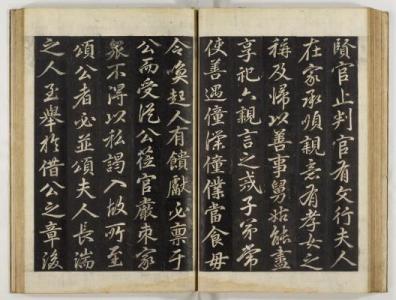 賢官止判官有文行夫人
在家承順親意有孝女之
稱及歸以善事舅姑能盡
享祀六親言之戒子弟常
使善遇僮僕僮僕當食毋
令喚起人有饋獻必禀于
公而受從公莅官嚴束家
眾不得以私謁入故所至
頌公者必並頌夫人長湍
之人至舉於借公之章後